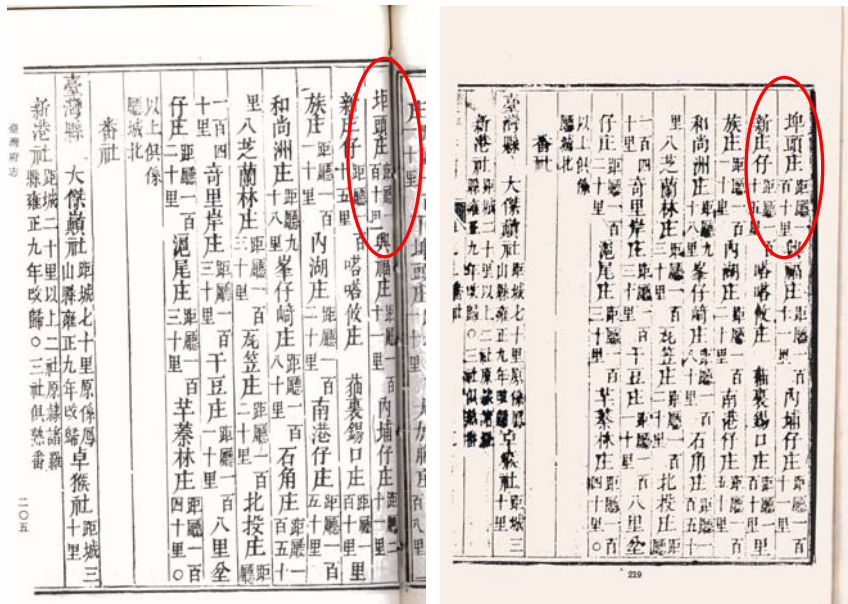 頭庄距廳一百十里興福庄距廳一百一十里內埔仔庄距廳一百一十里
新庄仔距廳一百十五里嗒嗒攸庄猫裏錫口庄距廳一百十里
族庄距廳一百一十里內湖庄距廳一百二十里南港仔庄距廳一百五十里
和尚洲庄距廳九十八里峯仔崎庄距廳一百八十里石角庄距廳一百五十
里八芝蘭林庄距廳一百三十里瓦笠庄距廳一百二十里北投庄距廳
一百四十里奇里岸庄距廳一百三十里干豆庄距廳一百一十里八里坌
仔庄距廳一百二十里滬尾庄距廳一百三十里芋蓁林庄距廳一百四十里○
以上俱係廳城北
番社
臺灣縣大傑巔社距城七十里原係鳳山縣雍正九年改歸卓猴社距城三十里
新港社距城二十里以上二社原隸諸羅縣雍正九年改歸○三社俱熟番
臺灣府志
二○五
埤頭庄距廳一百十里興福庄距廳一百一十里內埔仔庄距廳一百一十里
新庄仔距廳一百十五里嗒嗒攸庄猫裏錫口庄距廳一百十里
族庄距廳一百一十里內湖庄距廳一百二十里南港仔庄距廳一百五十里
和尚洲庄距廳九十八里峯仔崎庄距廳一百八十里石角庄距廳一百五十
里八芝蘭林庄距廳一百三十里瓦笠庄距廳一百二十里北投庄距廳
一百四十里奇里岸庄距廳一百三十里干豆庄距廳一百一十里八里坌
仔庄距廳一百二十里滬尾庄距廳一百三十里芋蓁林庄距廳一百四十里○
以上俱係廳城北
番社
臺灣縣大傑巔社距城七十里原係鳳山縣雍正九年改歸卓猴社距城三十里
新港社距城二十里以上二社原隸諸羅縣雍正九年改歸○三社俱熟番
219